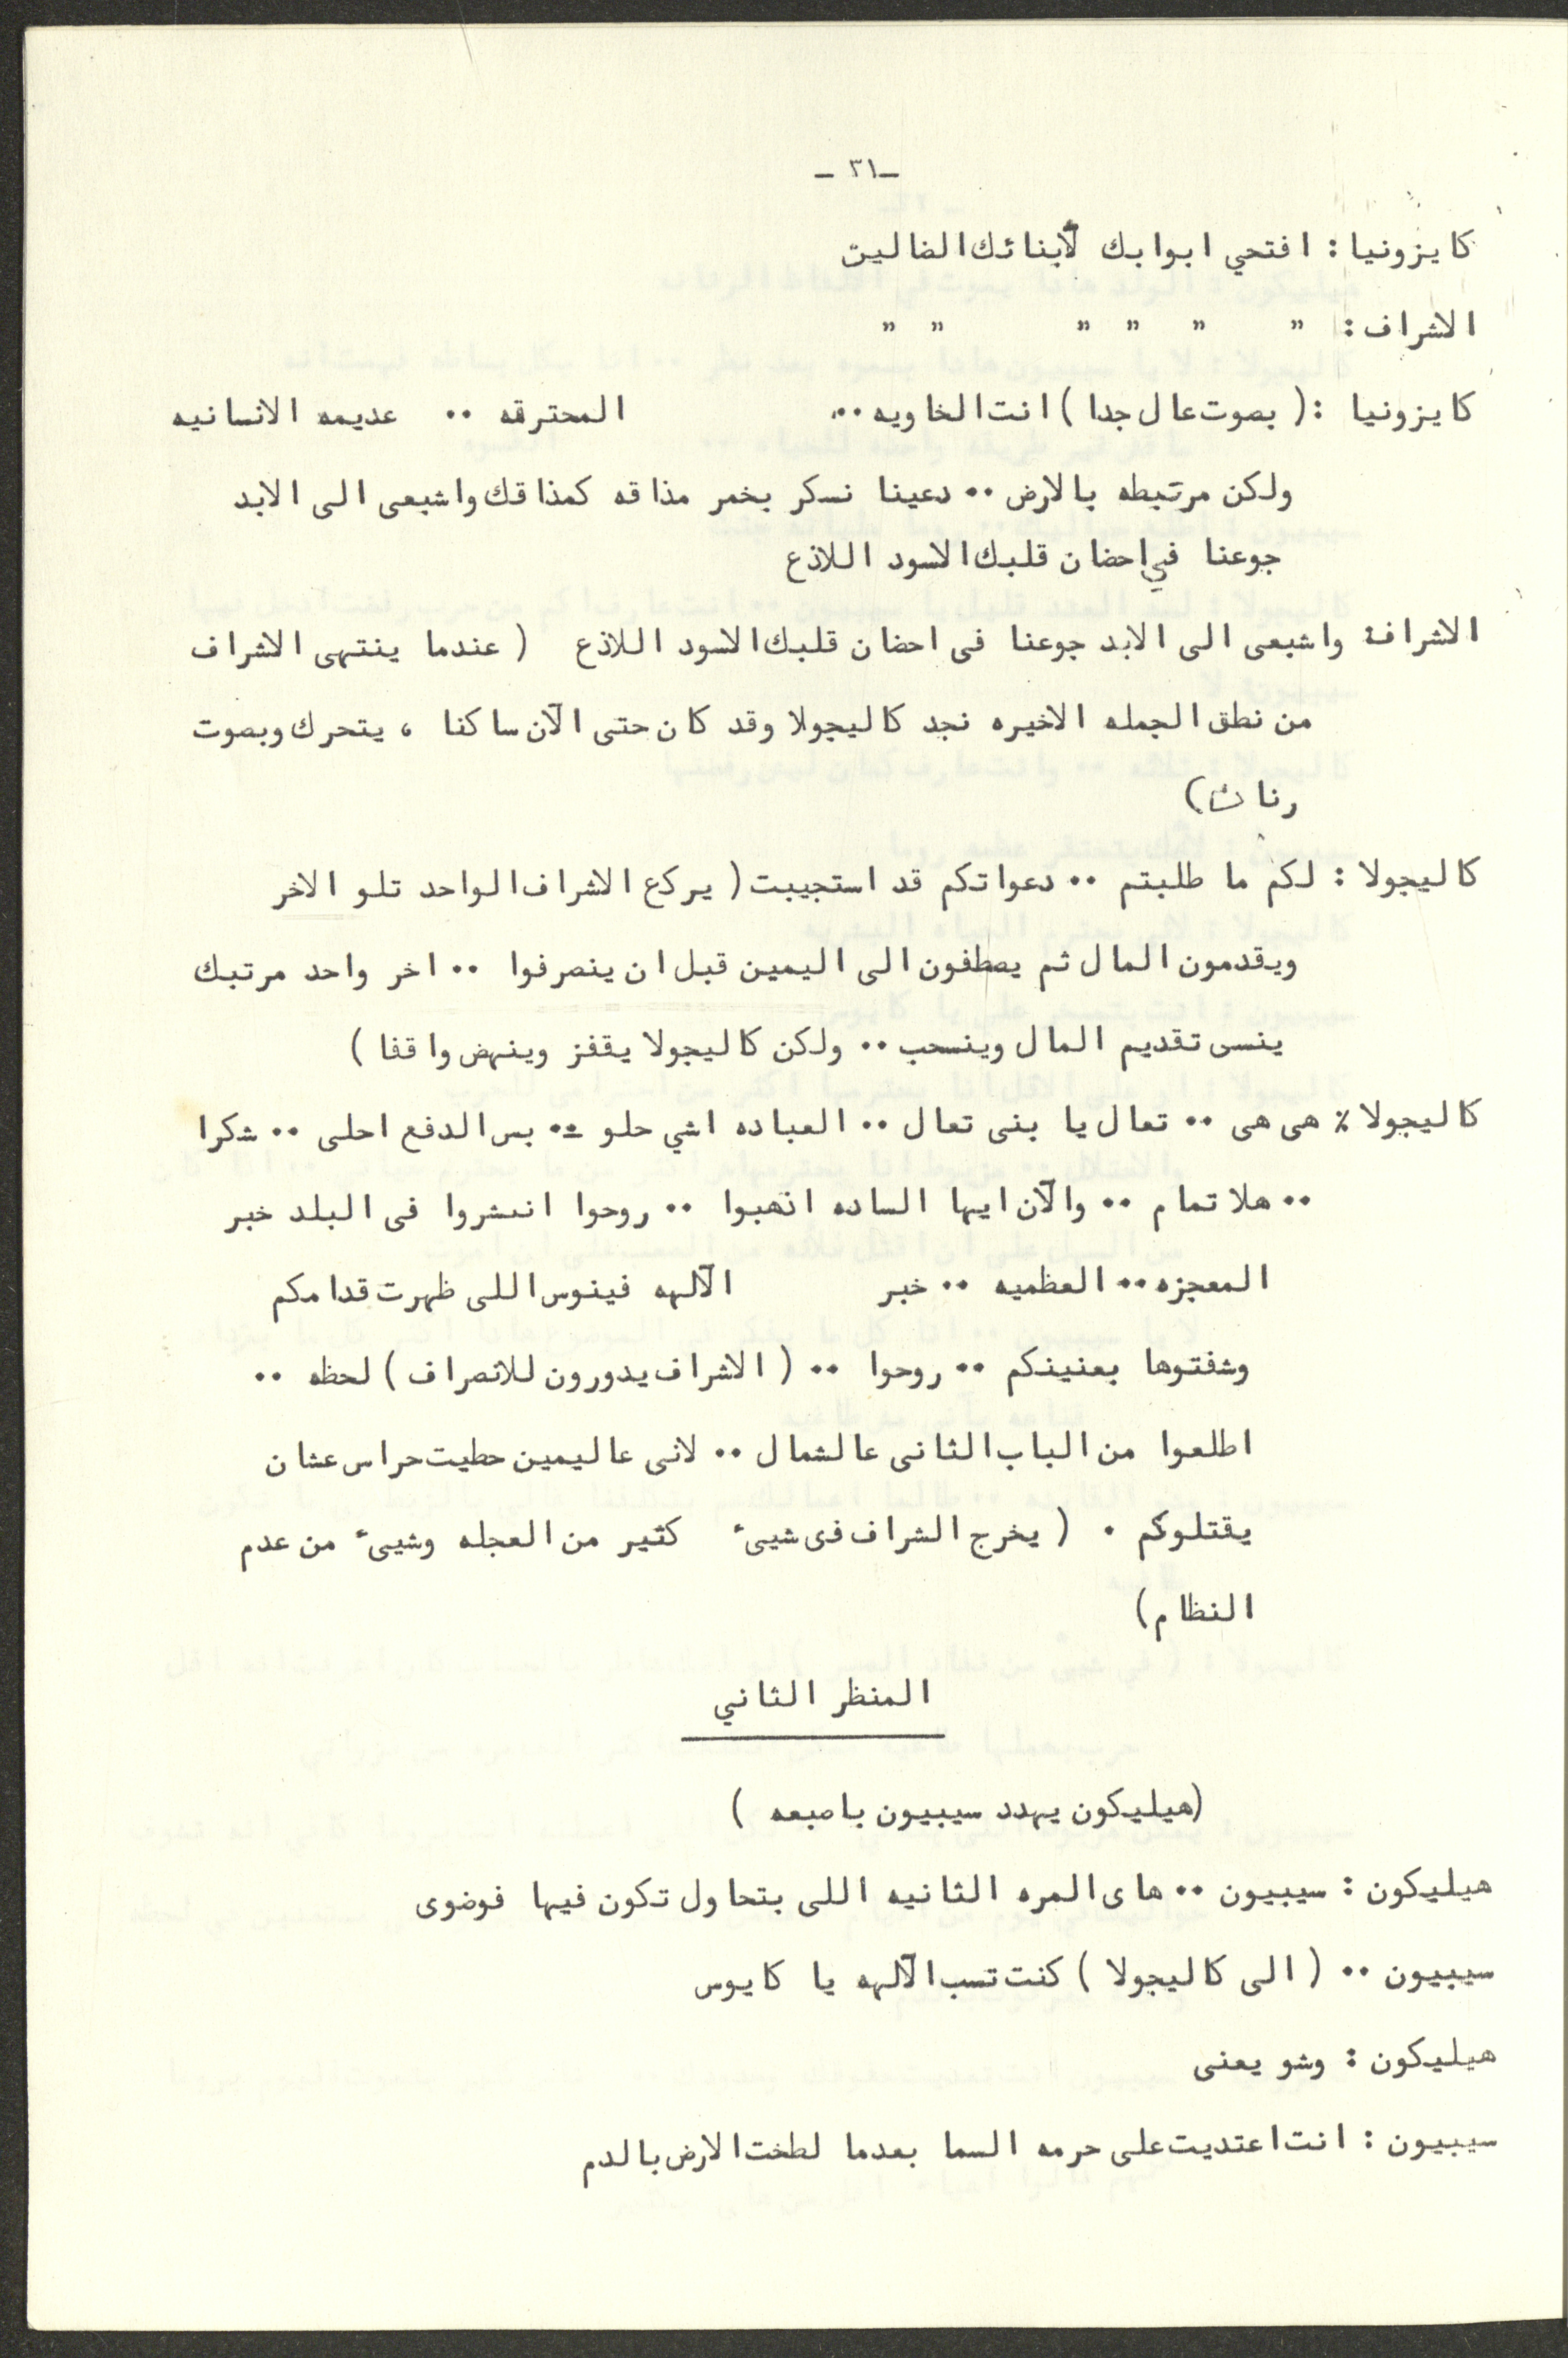 ـ٣١ ـ
كايزونيا : افتحي ابوابك لأبنائك الضالين
الاشراف : " " " " " "
كايزونيا : ( بصوت عال جدا ) انت الخاويه .. المحترقه .. عديمه الانسانيه
ولكن مرتبطه بالارض .. دعينا نسكر بخمر مذاقه كمذاقك واشبعى الى الابد
جوعنا في احضان قلبك الاسود اللاذع
الاشراف: واشبعى الى الابد جوعنا فى احضان قلبك الاسود اللاذع ( عندما ينتهى الاشراف
من نطق الجمله الاخيره نجد كاليجولا وقد كان حتى الآن ساكنا ، يتحرك وبصوت
رنان )
كاليجولا : لكم ما طلبتم .. دعواتكم قد استجيبت ( يركع الاشراف الواحد تلو الاخر
ويقدمون المال ثم يصطفون الى اليمين قبل ان ينصرفوا .. اخر واحد مرتبك
ينسى تقديم المال وينسحب .. ولكن كاليجولا يقفز وينهض واقفا )
كاليجولا : هى هى .. تعال يا بنى تعال .. العباده اشي حلو .. بس الدفع احلى .. شكرا
.. هلا تمام .. والآن ايها الساده اذهبوا .. روحوا انشروا فى البلد خبر
المعجزه .. العظميه .. خبر الآلهه فينوس اللى ظهرت قدامكم
وشفتوها بعنينكم .. روحوا .. ( الاشراف يدورون للانصراف ) لحظه ..
اطلعوا من الباب الثانى عالشمال .. لانى عاليمين حطيت حراس عشان
يقتلوكم . ( يخرج الشراف فى شيىء كثير من العجله وشيىء من عدم
النظام )
المنظر الثاني
( هيليكون يهدد سيبيون باصبعه )
هيليكون : سيبيون .. هاى المره الثانيه اللى بتحاول تكون فيها فوضوى
سيبيون .. ( الى كاليجولا ) كنت تسب الآلهه يا كايوس
هيليكون : وشو يعنى
سيبيون : انت اعتديت على حرمه السما بعدما لطخت الارض بالدم